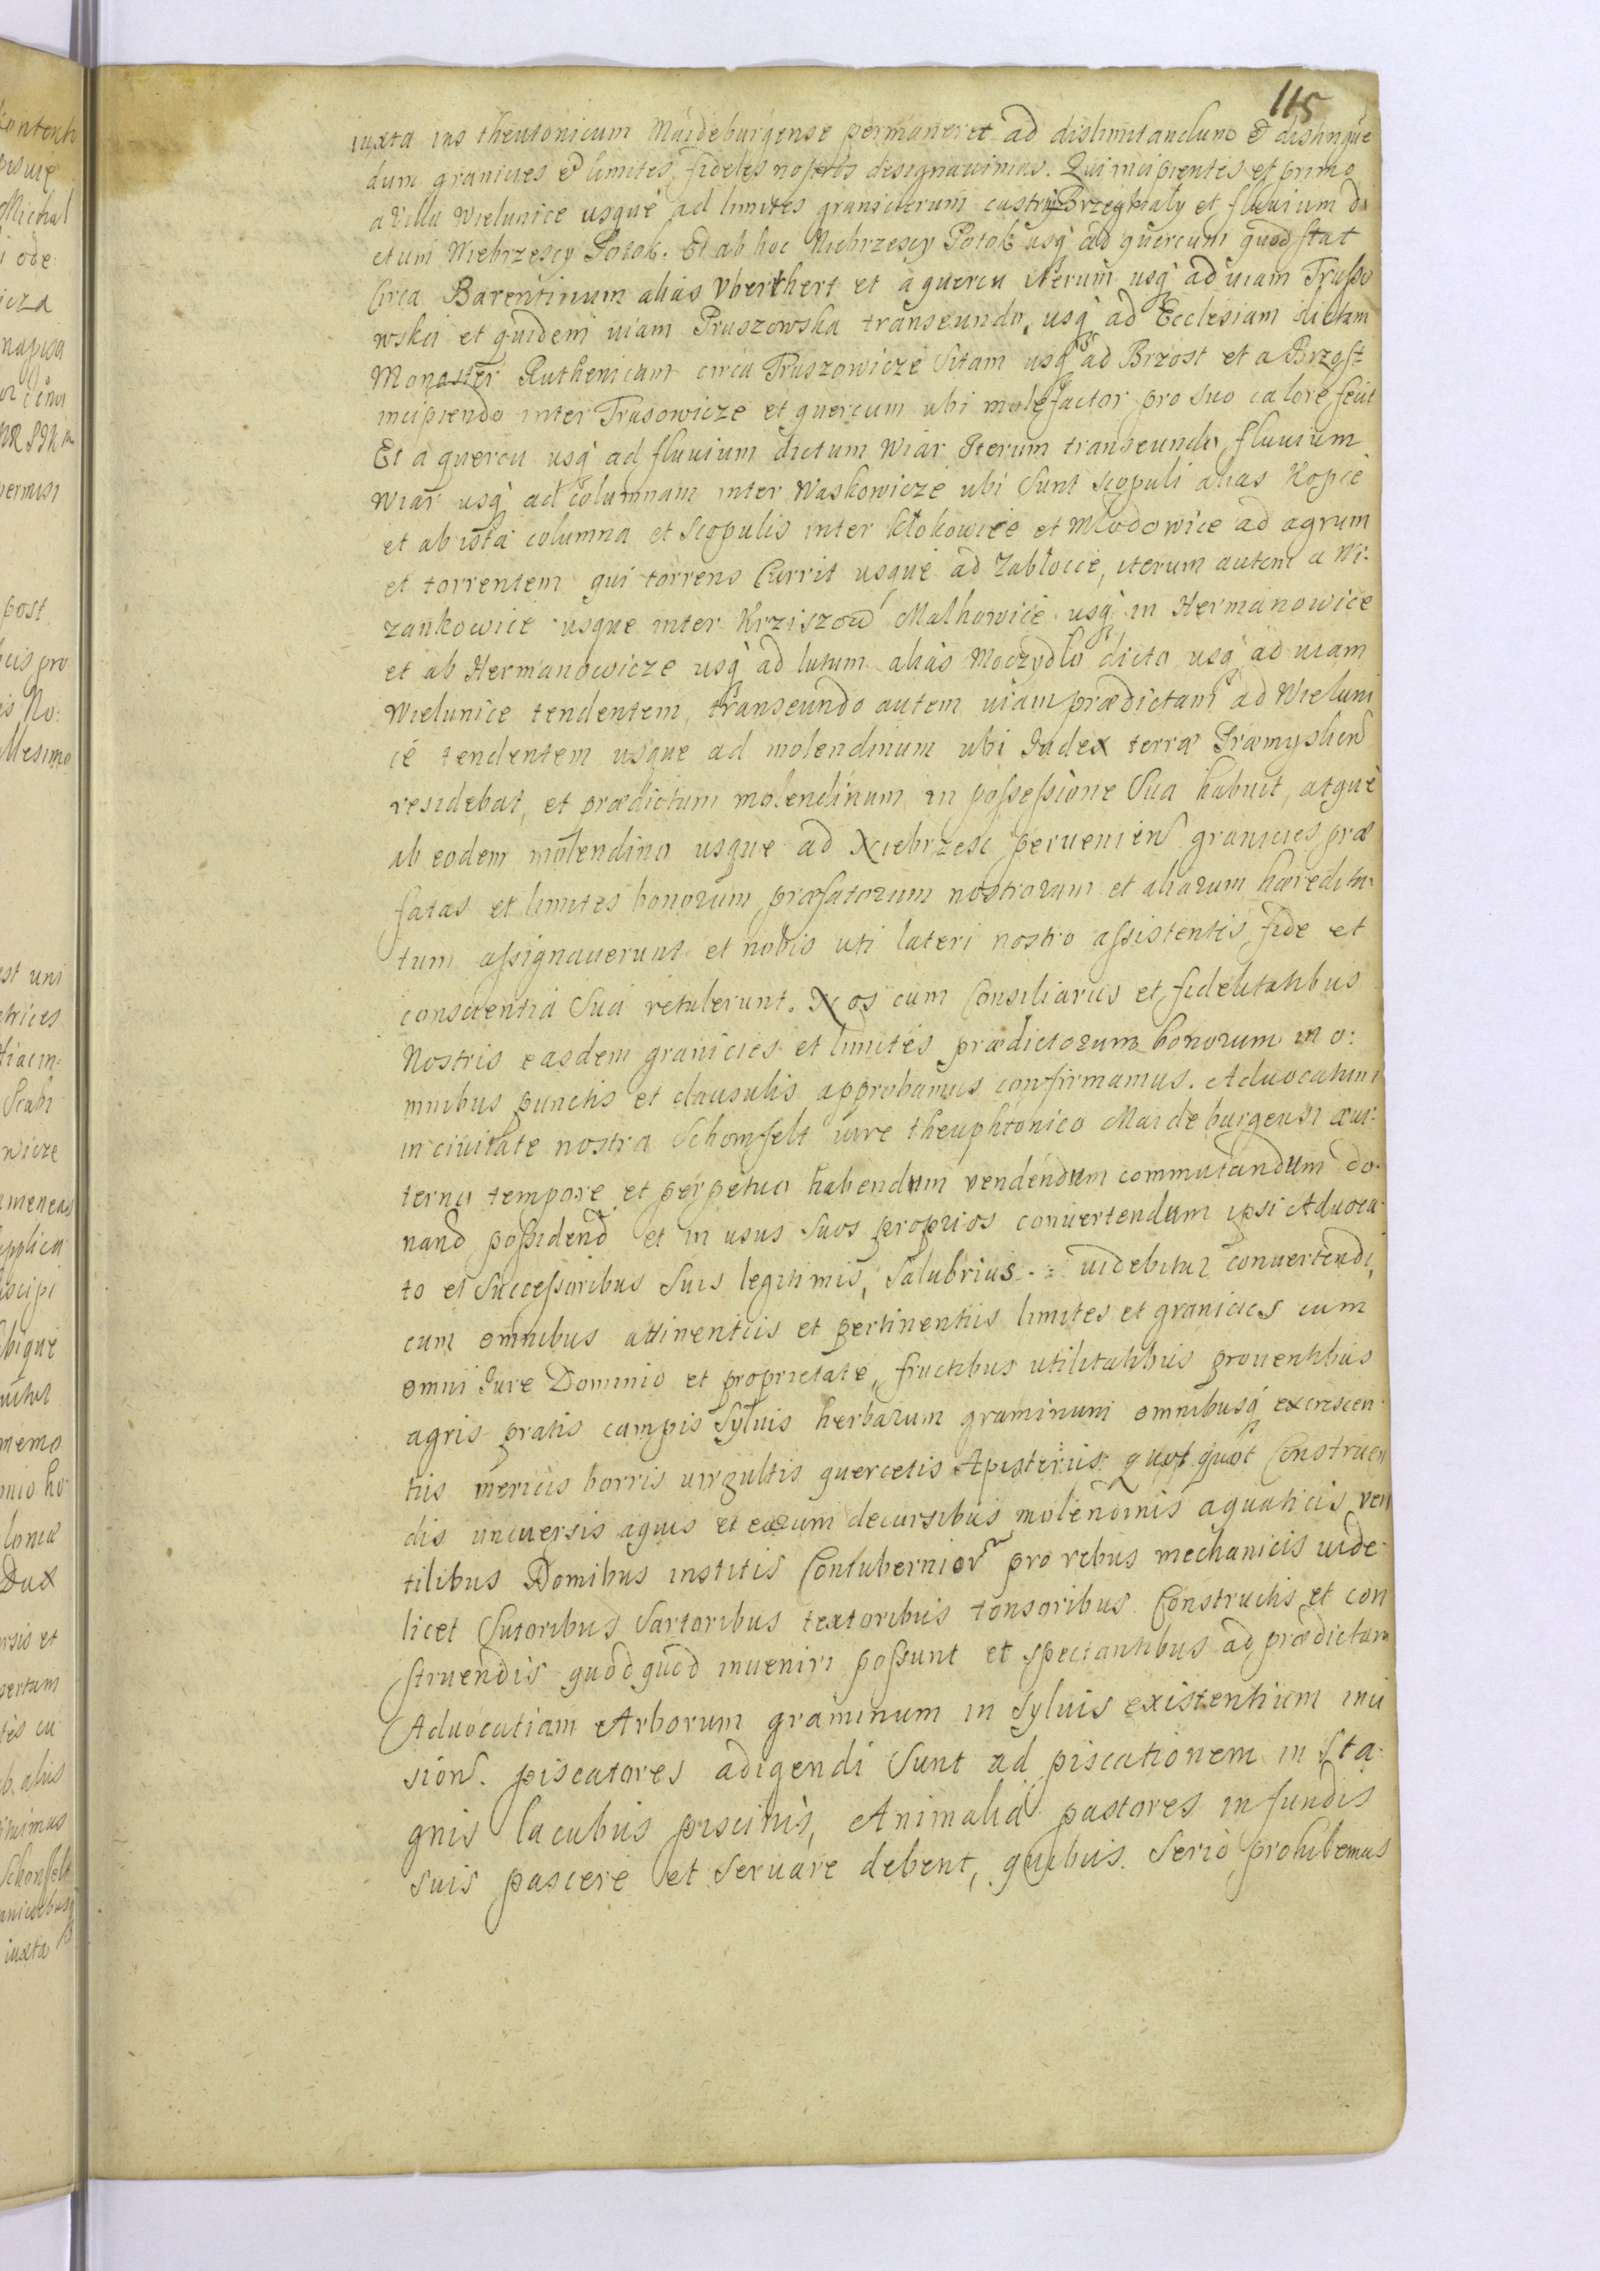 115
iuxta ius theutonicum Maideburgense permaneret ad dislimitandum & distingue
dum granicies & limites, fideles nostros designauimus. Qui incipientes et primo
a Villa Wielunice usque ad limites granicierum castri Brzeghaly et fluuium di
ctum Niebrzescy Potok. Et ab hoc Niebrzescy Potok usq ad quercum quod stat
Circa Barentinum alias Vberthert et a quercu iterum usq ad uiam Truszo
wska et quidem uiam Pruszowska transeundo, usq ad Ecclesiam dictam
Monaster Ruthenicam circa Truszowicze Sitam usq ad Brzost et a Brzost
incipiendo inter Trusowicze et quercum ubi molefactor pro suo calore fecit
Et a quercu usq ad fluuium dictum Wiar Iterum transeundo fluuium
Wiar usq ad columnam inter Waskowicze ubi Sunt scopuli alias Kopce
et ab ista columna et Scopulis inter Kłokowice et Młodowice ad agrum
et torrentem qui torrens Currit usque ad Zabłocce, iterum autem a Ni:
zankowice usque inter Krziszow Malhowice usq in Hermanowice
et ab Hermanowicze usq ad lutum alias Moczydło dicto usq ad uiam
Wielunice tendentem, transeundo autem uiam prædictam ad Wieluni
ce tendentem usque ad molendinum ubi Iudex terræ Præmyslien
residebat, et prædictum molendinum in possessione Sua habuit, atque
ab eodem molendino usque ad Niebrzesc peruenien granicies præ
fatas et limites bonorum præfatorum nostrorum et aliarum hæredita:
tum assignauerunt et nobis uti lateri nostro assistentis fide et
conscientia Sua retulerunt. Nos cum Consiliariis et fidelitatibus
Nostris easdem granicies et limites prædictorum bonorum in o:
mnibus punctis et clausulis approbamus confirmamus. Aduocatum
in ciuitate nostra Schomfelt iure theuphtonico Maideburgensi æui:
terno tempore et perpetuo habendum vendendum commutandum do:
nand possidend et in usus Suos proprios conuertendum ipsi Aduoca
to et Successoribus Suis legitimis, Salubrius - = uidebitur conuertendi,
cum omnibus attinentiis et pertinentiis limites et granicies cum
omni Iure Dominio et proprietate, fructibus utilitatibus prouentibus
agris pratis campis Syluis herbarum graminum omnibusq excrescen
tiis mericis borris uirgultis quercetis Apisteriis quot quot Construen
dis uniuersis aquis et earum decursibus molendinis aquaticis ven
tilibus Domibus institis Contubernior pro rebus mechanicis uide:
licet Sutoribus Sartoribus textoribus tonsoribus Constructis et con
struendis quod quod inueniri possunt et spectantibus ad prædictam
Aduocatiam Arborum graminum in Syluis existentium inci
sion. piscatores adigendi Sunt ad piscationem in Sta:
gnis lacubus piscinis, Animalia pastores in fundis
suis pascere et Seruare debent, quibus Serio prohibemus